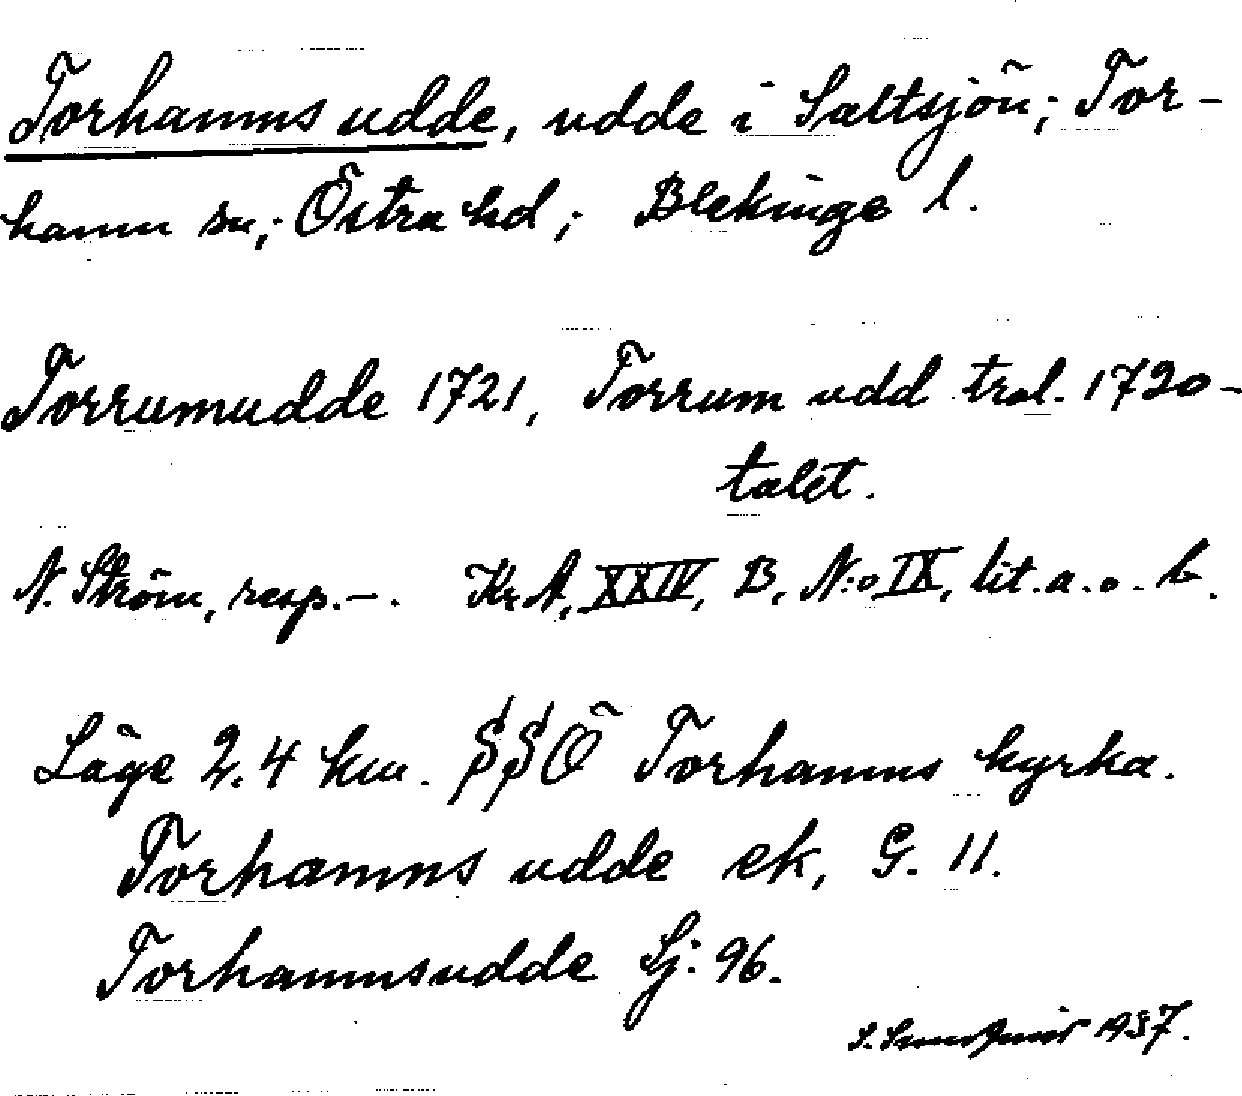 Torhamns udde, udde i Saltsjön; Tor-
hamn sn; Östra hd; Blekinge l.
Torrumudde 1721, Torrum udd trol. 1720-
talet.
N. Ström, resp. -. Kr.A, XXIV, B, N:o IX, lit. a. o. b.
Läge 2.4 km. SSÖ Torhamns kyrka.
Torhamns udde ek, G. 11.
Torhamnsudde Sj: 96.
S. 1937.